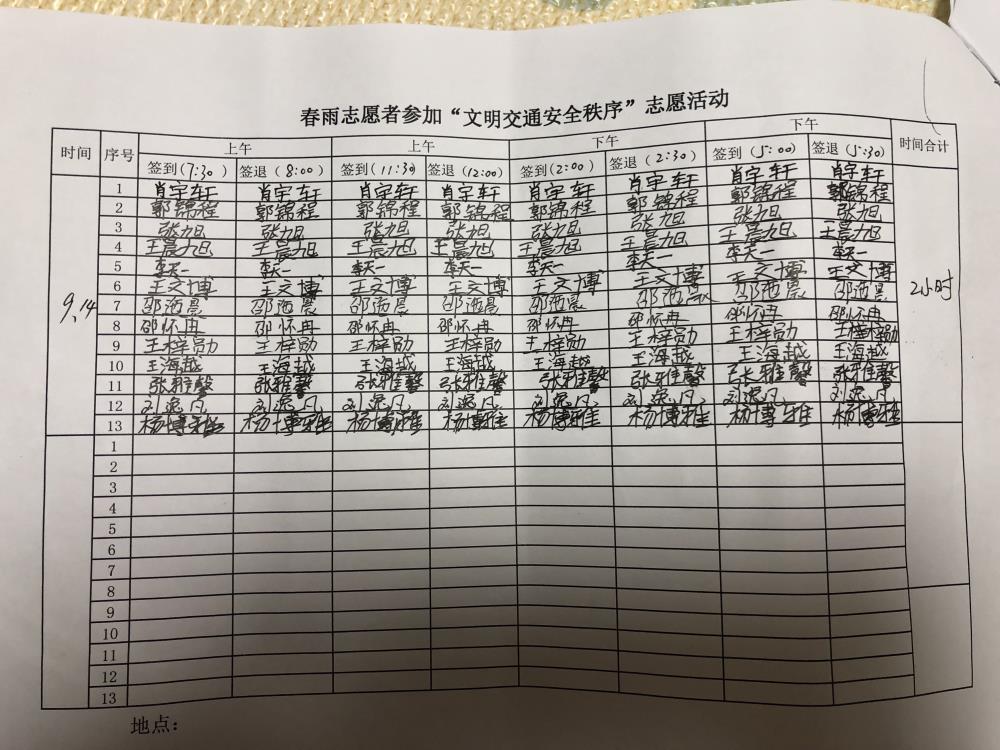 春雨志愿者参加“文明交通安全秩序”志愿活动
时间 序号 上午 上午 下午 下午 时间合计
签到(7:30) 签退(8:00) 签到(11:30) 签退(12:00) 签到(2:00) 签退(2:30) 签到(5:00) 签退(5:30)
9.14 2小时
1 肖宇轩 肖宇轩 肖宇轩 肖宇轩 肖宇轩 肖宇轩 肖宇轩 肖宇轩
2 郭锦程 郭锦程 郭锦程 郭锦程 郭锦程 郭锦程 郭锦程 郭锦程
3 张旭 张旭 张旭 张旭 张旭 张旭 张旭 张旭
4 王晨旭 王晨旭 王晨旭 王晨旭 王晨旭 王晨旭 王晨旭 王晨旭
5 李天一 李天一 李天一 李天一 李天一 李天一 李天一 李天一
6 王文博 王文博 王文博 王文博 王文博 王文博 王文博 王文博
7 邵洒晨 邵洒晨 邵洒晨 邵洒晨 邵洒晨 邵洒晨 邵洒晨 邵洒晨
8 邵怀冉 邵怀冉 邵怀冉 邵怀冉 邵怀冉 邵怀冉 邵怀冉 邵怀冉
9 王梓勋 王梓勋 王梓勋 王梓勋 王梓勋 王梓勋 王梓勋 王梓勋
10 王海越 王海越 王海越 王海越 王海越 王海越 王海越 王海越
11 张雅馨 张雅馨 张雅馨 张雅馨 张雅馨 张雅馨 张雅馨 张雅馨
12 刘逸凡 刘逸凡 刘逸凡 刘逸凡 刘逸凡 刘逸凡 刘逸凡 刘逸凡
13 杨博雅 杨博雅 杨博雅 杨博雅 杨博雅 杨博雅 杨博雅 杨博雅
1
2
3
4
5
6
7
8
9
10
11
12
13
地点：